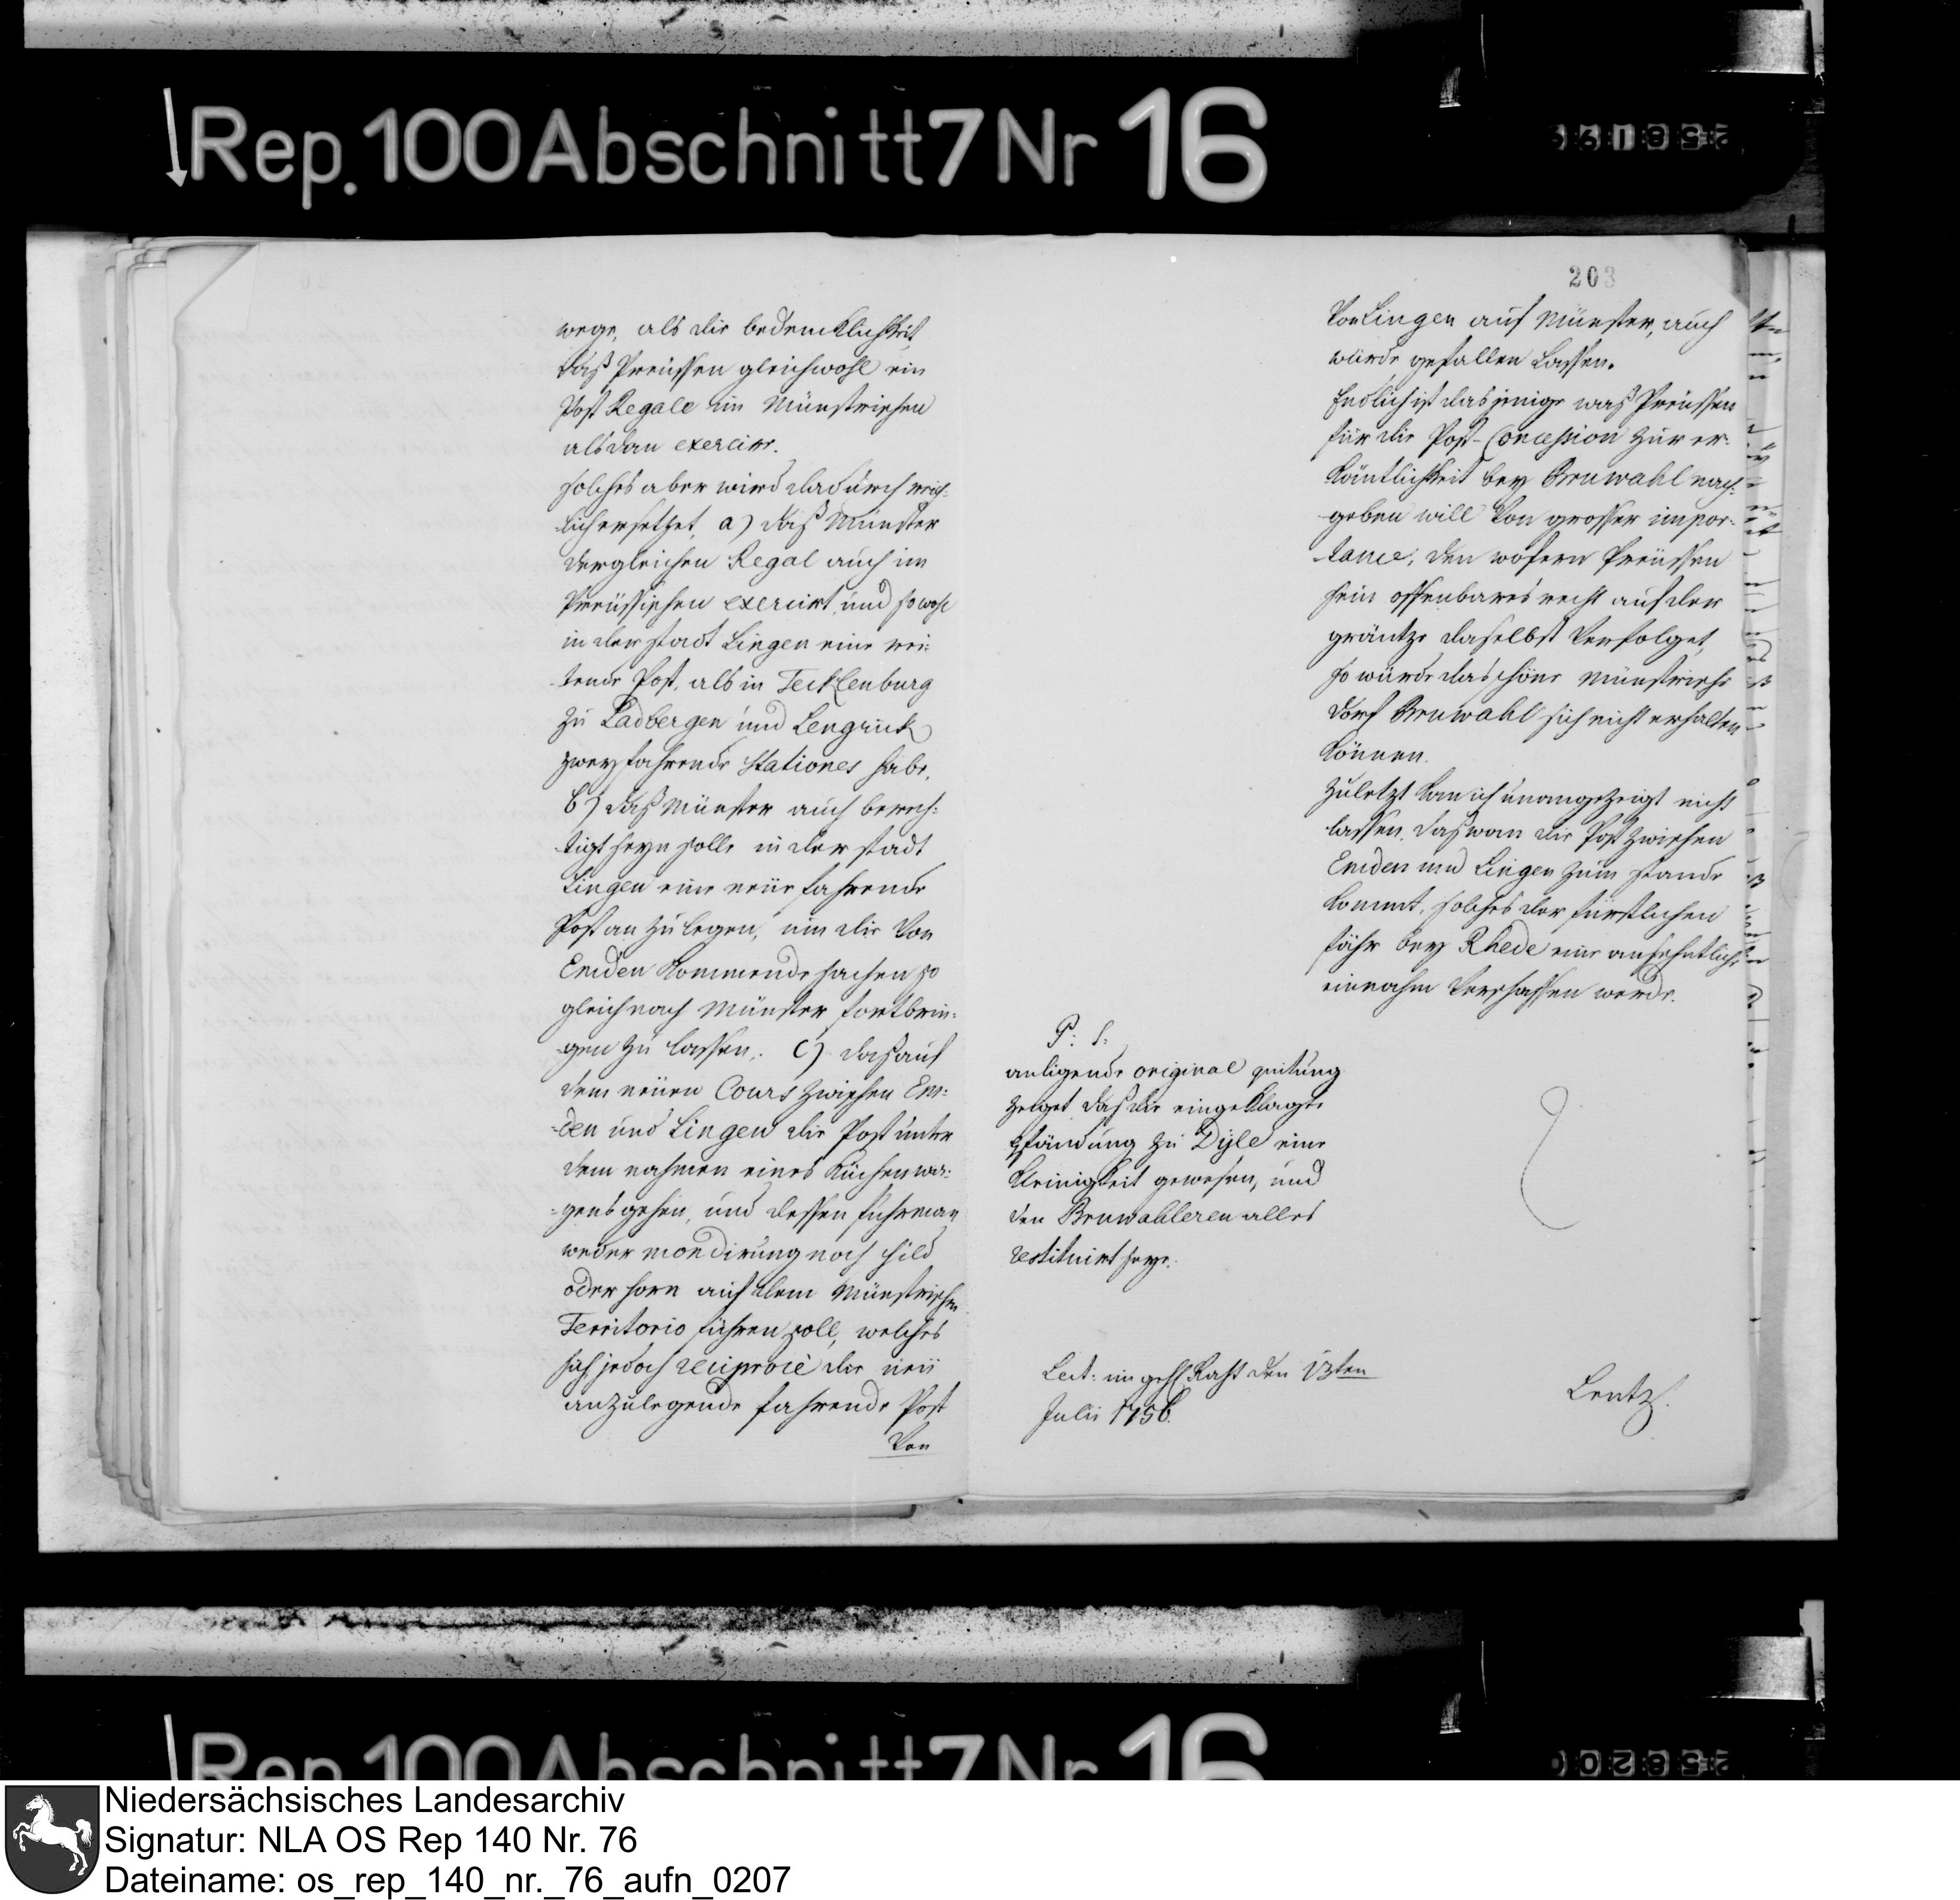 Rep. 100 Abschnitt 7 Nr 16
wege, als die bedencklichkeit,
daß Preüssen gleichwohl ein
Post Regale im Münstrischen
alsdan exercire.
solches aber wird dadurch reich-
lich ersetzet, a) daß Münster
dergleichen Regal auch im
Preüssischen exercirt, und sowohl
in der stadt Lingen eine rei-
tende Post, als in Tecklenburg
zu Ladbergen und Lengrick
zwey fahrende Stationes habe.
b) daß Münster auch berech-
tigt seyn solle in der stadt
Lingen eine neüe fahrende
Post an zu legen, um die von
Emden kommende sachen so
gleich nach Münster fortbrin-
gen zu lassen. c) daß auf
dem neüen Cours zwischen Em-
den und Lingen die Post unter
dem nahmen eines Küchen wa-
gens gehen, und dessen fuhrman
weder mondirung noch schild
oder horn auf dem Münstrischen
Territorio führen soll, welches
sich jedoch reciprocè die neü
anzulegende fahrende Post
von
203
von Lingen auf Münster, auch
würde gefallen lassen.
Endlich ist dasjenige was Preüssen
für die Post-Concession zur er-
käntlichkeit bey Bruwahl nach-
geben will von grosser impor-
tance; den wofern Preüssen
sein offenbares recht auf der
gräntze daselbst verfolget,
so würde das schöne Münstrische
dorf Bruwahl sich nicht erhalten
können.
Zuletzt kan ich unangezeigt nicht
lassen, daß wan die Post zwischen
Emden und Lingen zum stande
kommt, solches der fürstlichen
fähr bey Rhede eine ansehntliche
einnahm verschaffen werde.
P: S:
anligende original quitung
zeiget daß die eingeklagte
pfändung zu Dyle eine
kleinigkeit gewesen, und
den Bruwahleren alles
restituirt seye.
Lect: im geh Raht den 13ten
Julii 1756.
Lentz.
Rep. 100 Abschnitt 7 Nr 16
Niedersächsisches Landesarchiv
Signatur: NLA OS Rep 140 Nr. 76
Dateiname: os_rep_140_nr._76_aufn_0207